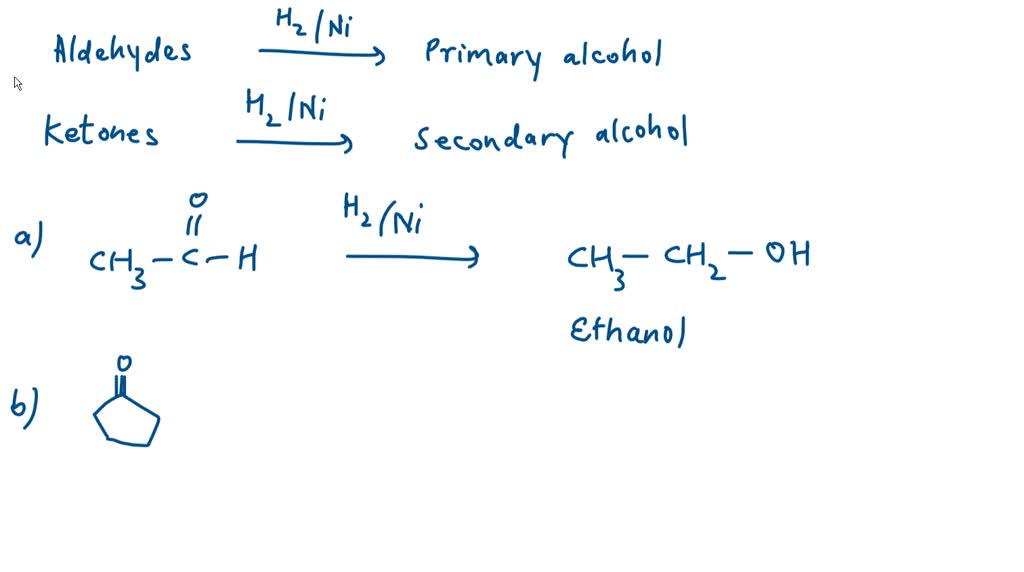 Aldehydes H2/Ni Primary alcohol
Ketones H2/Ni Secondary alcohol
O
a) CH3-C-H H2/Ni CH3-CH2-OH
Ethanol
O
b)